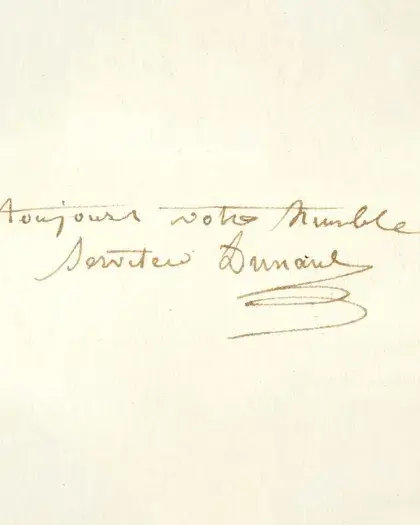 toujours votre humble
Serviteur Durand